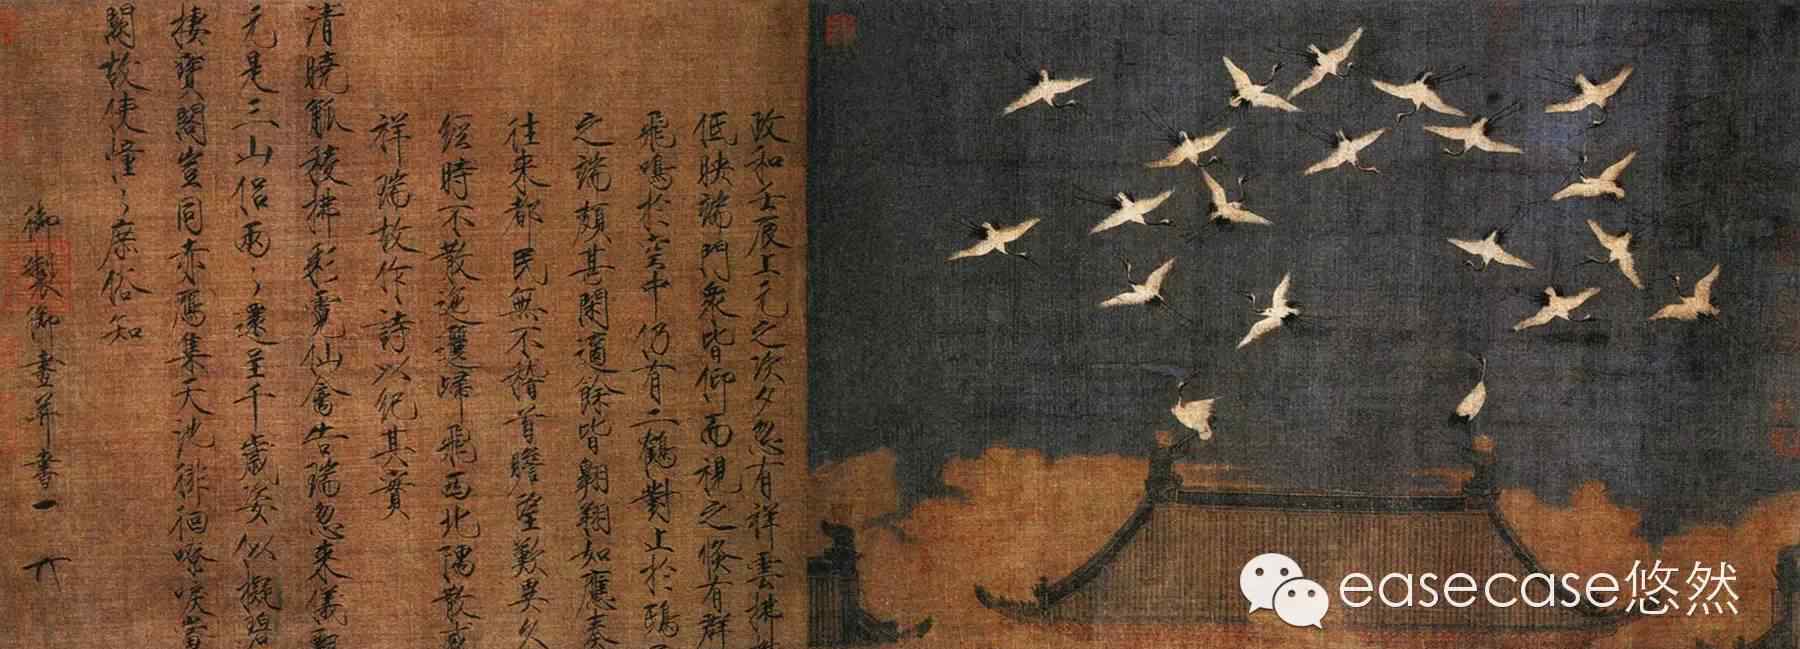 政和壬辰上元之次夕忽有祥雲拂
低映端門衆皆仰而視之倏有群
飛鳴於空中仍有二鶴對止於鴟
之端頗甚閑適餘皆翱翔如應奏
往來都民無不稽首瞻望歎異久
經時不散迤邐歸飛西北隅散感
祥瑞故作詩以紀其實
清曉觚稜拂彩霓仙禽告瑞忽來儀
元是三山侶兩〻還呈千歲姿似擬碧
棲寶閣豈同赤鴈集天池徘徊嘹唳當
闕故使憧〻庶俗知
御製御畫并書
easecase悠然